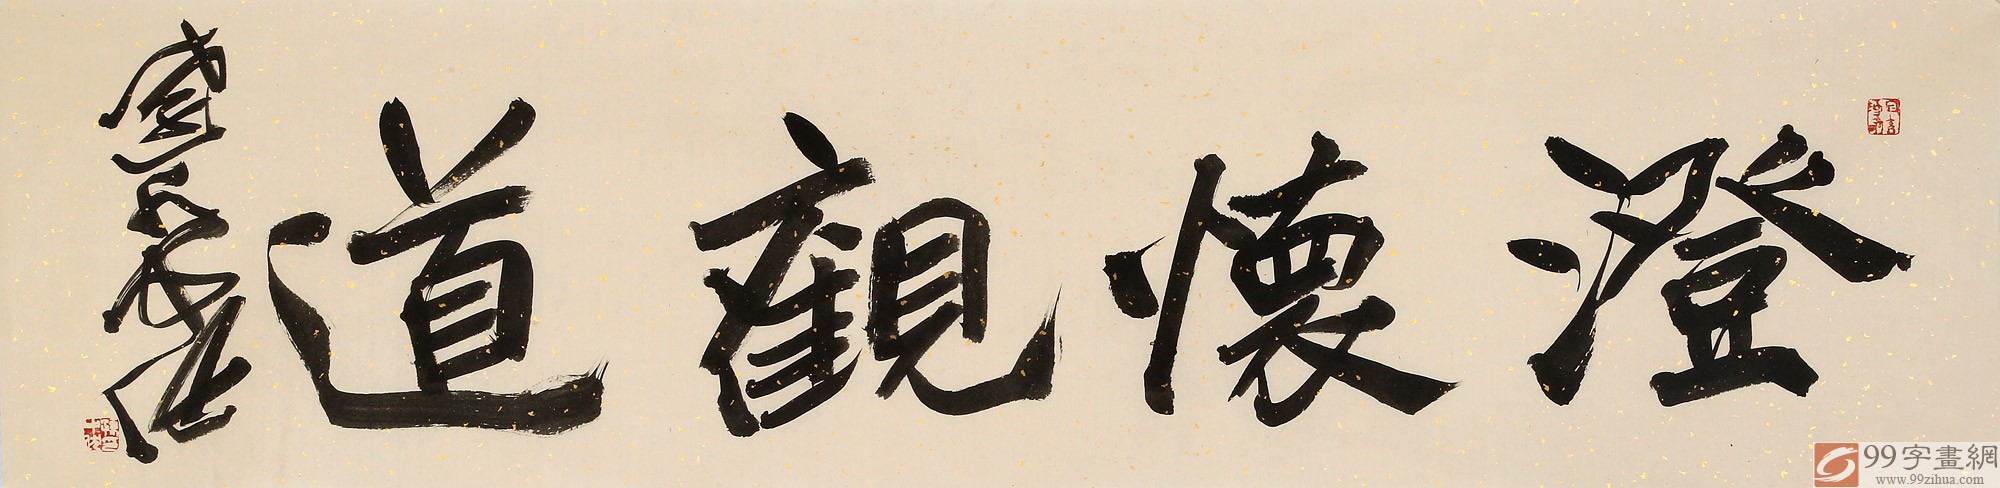 澄懷觀道
99字畫網
www.99zihua.com